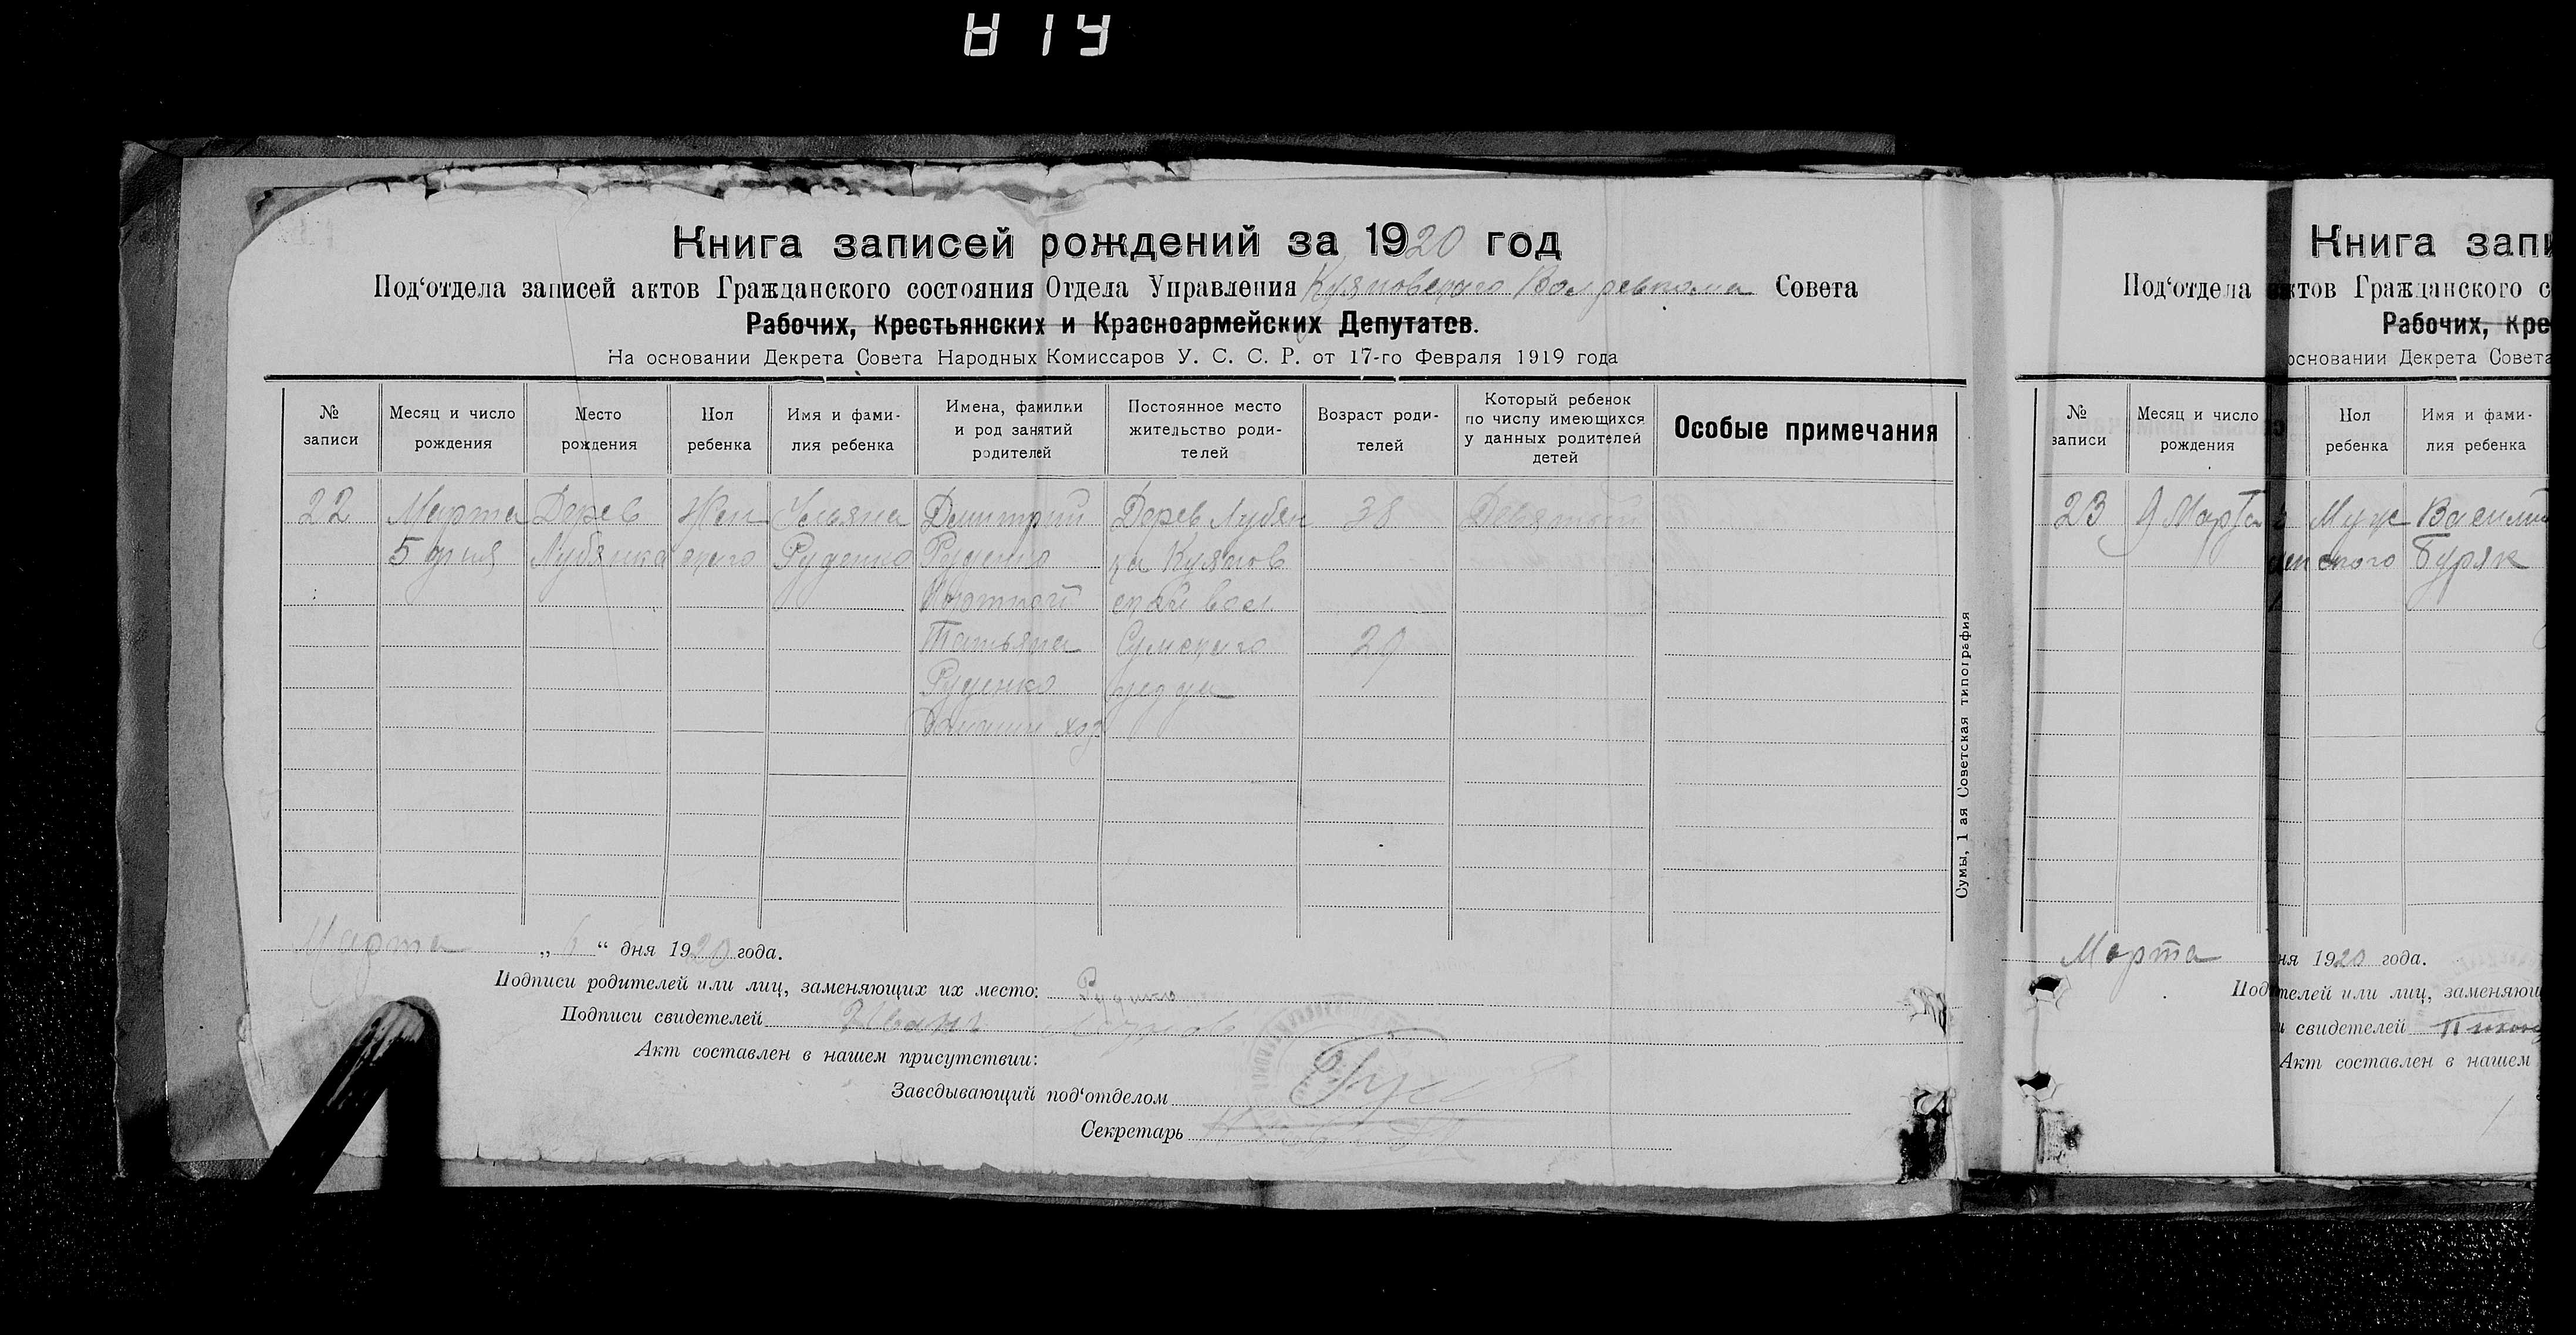 Книга записей рождений за 1920 год
Под‘отдела записей актов Гражданского состояния Отдела Управления Куяновского Волревкома Совета
Рабочих, Крестьянских и Красноармейских Депутатов.
На основании Декрета Совета Народных Комиссаров У. С. С. Р. от 17-го Февраля 1919 года
№ записи
Месяц и число рождения
Место рождения
Пол ребенка
Имя и фами-
лия ребенка
Имена, фамилии
и род занятий
родителей
Постоянное место
жительство роди-
телей
Возраст роди-
телей
Который ребенок
по числу имеющихся
у данных родителей
детей
Особые примечания
22
Марта
5 дня
Дерев
Лубянка
Жен
ского
Ульяна
Руденко
Дмитрий
Руденко
Татьяна
Руденко
Домашн хоз
Дерев Лубян
ка Куянов
ской вол
Сумского
уезда
38
29
Девятый
Марта „ “ дня 1920 года.
Подписи родителей или лиц, заменяющих их место: Руденко
Подписи свидетелей Иванъ
Акт составлен в нашем присутствии:
Заведывающий под‘отделом
Секретарь
Сумы, 1 ая Советская типография
Книга запи
Под‘отдела актов Гражданского с
Рабочих, Кре
основании Декрета Совета
№ записи
Месяц и число
рождения
Пол
ребенка
Имя и фами-
лия ребенка
23
9 Марта
Муж
ского
Василий
Буряк
Марта ня 1920 года.
Под телей или лиц, заменяющ
и свидетелей
Акт составлен в нашем